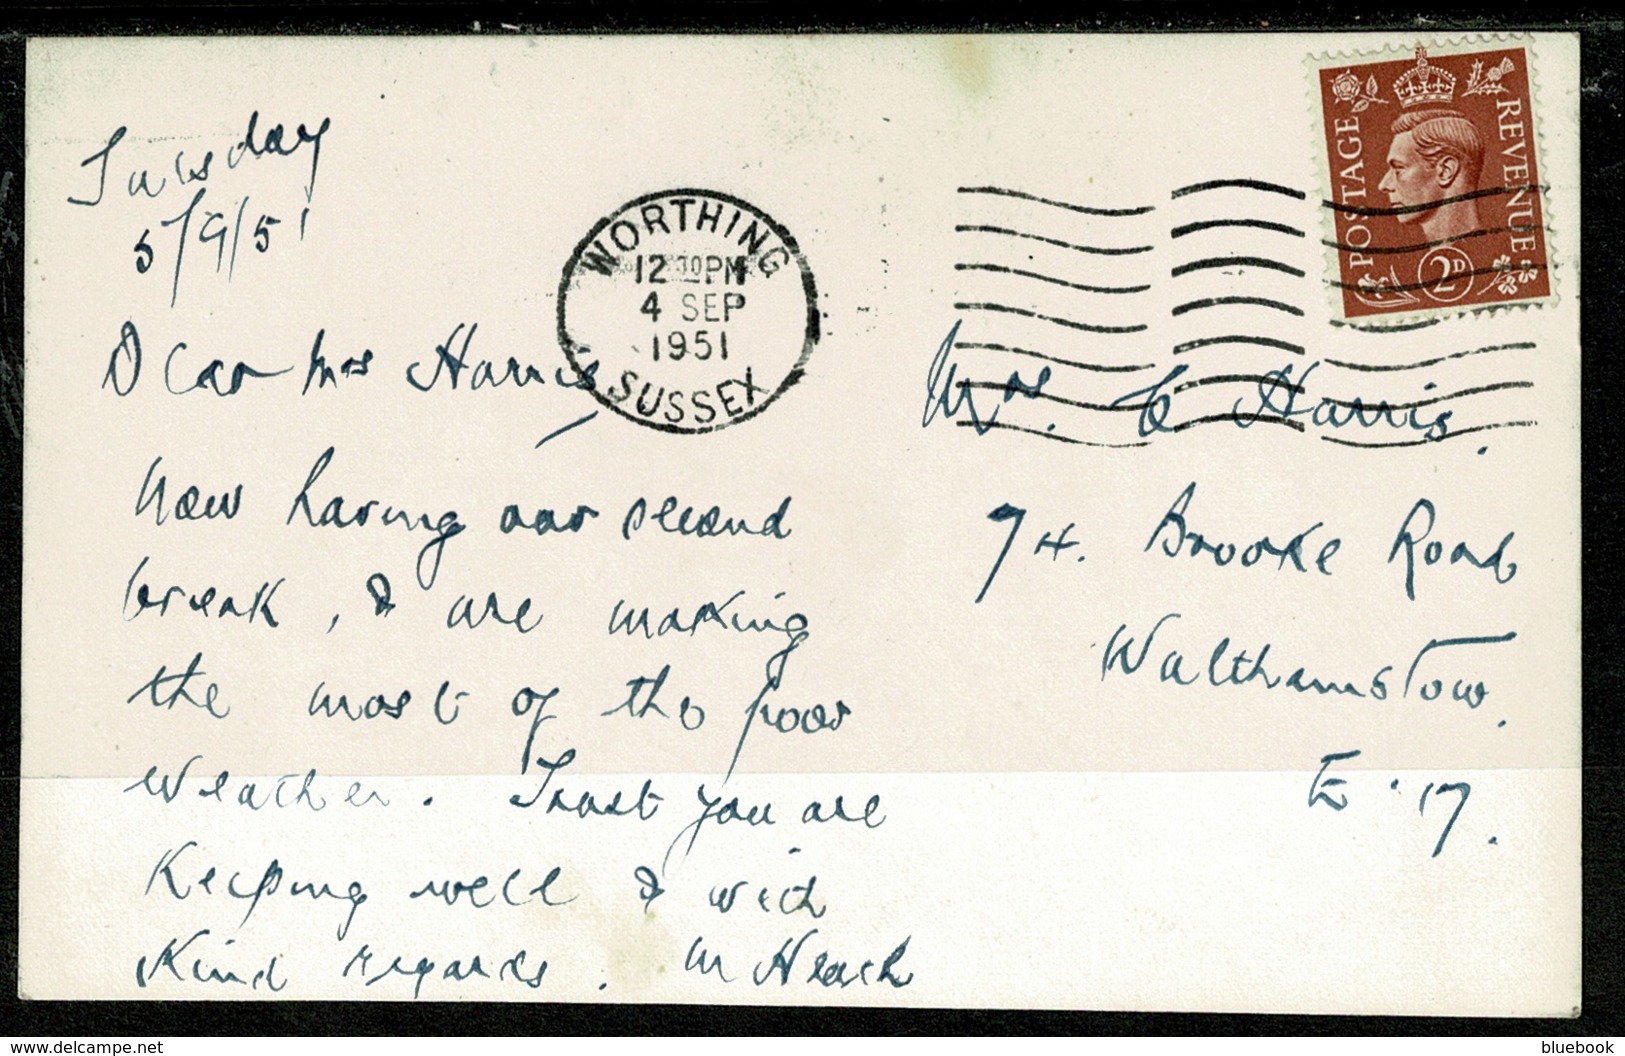 Tuesday
5/9/51
WORTHING
12 30 PM
4 SEP
1951
SUSSEX
POSTAGE
REVENUE
2D
Dear Mrs Harris,
Now having our second
break, & are making
the most of the poor
weather. Trust you are
keeping well & with
kind regards. M
Mrs. C Harris.
74. Brooke Road
Walthamstow.
E.17.
delcampe.net
bluebook